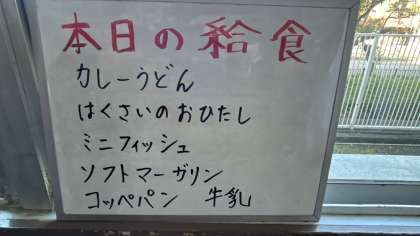 本日の給食
カレーうどん
はくさいのおひたし
ミニフィッシュ
ソフトマーガリン
コッペパン 牛乳